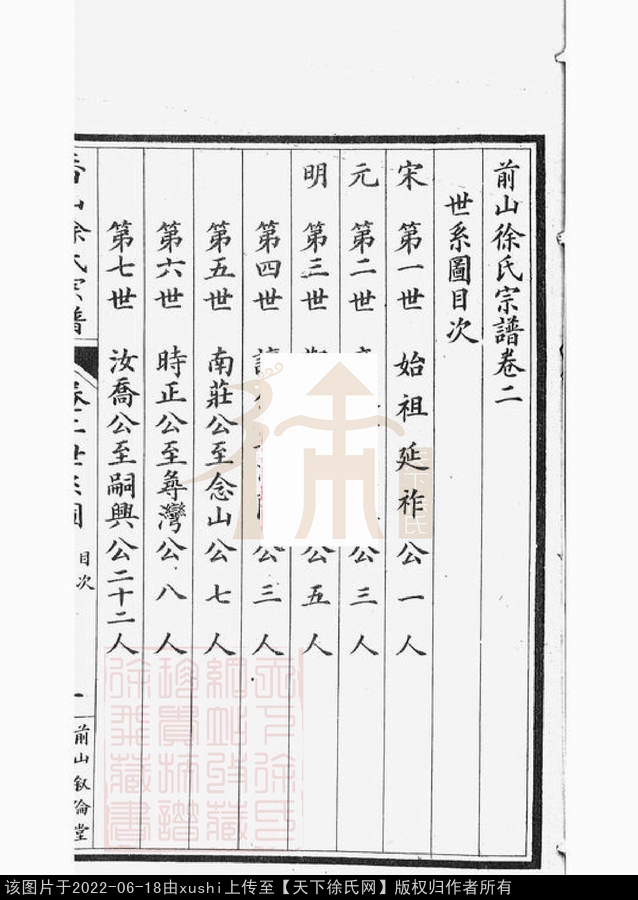 前山徐氏宗譜卷二
世系圖目次
宋 第一世 始祖延祚公一人
元 第二世 公三人
明 第三世 公五人
第四世 公三人
第五世 南莊公至念山公七人
第六世 時正公至彝灣公八人
第七世 汝喬公至嗣興公二十二人
香山徐氏宗譜 卷二世系圖 目次 一 前山敘倫堂
该图片于2022-06-18由xushi上传至【天下徐氏网】版权归作者所有